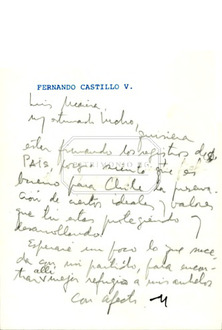 FERNANDO CASTILLO V.
Luis Maira,
mi estimado Lucho, quisiera
estar firmando los registros del
PAIS, porque siento que es
bueno para Chile la preserva-
ción de ciertos ideales y valores
que tu estas protegiendo y
desarrollando.
Esperaré un poco lo que suce-
da con mi partido, para encon-
trar alli mejor refugio a mis anhelos
Con afecto